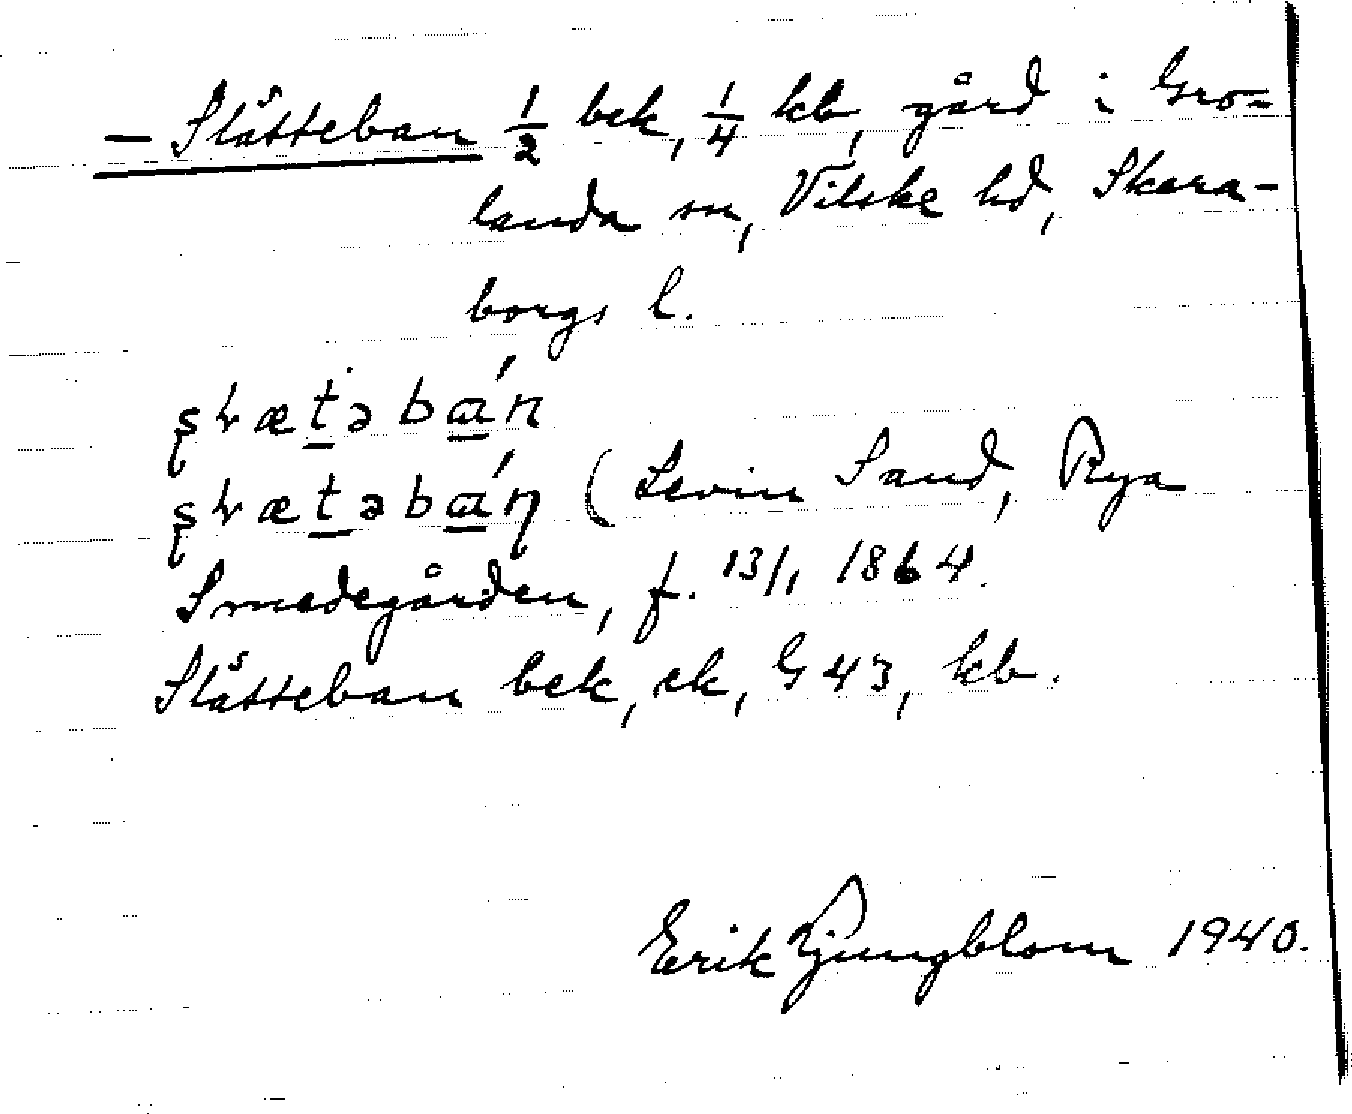 — Slätteban 1/2 bek, 1/4 kb, gård i Gro-
landa sn, Vilske hd, Skara-
borgs l.
(Levin Sand, Rya
Smedegården, f. 13/1 1864.
Slätteban bek, ek, G 43, kb.
Erik Ljungblom 1940.